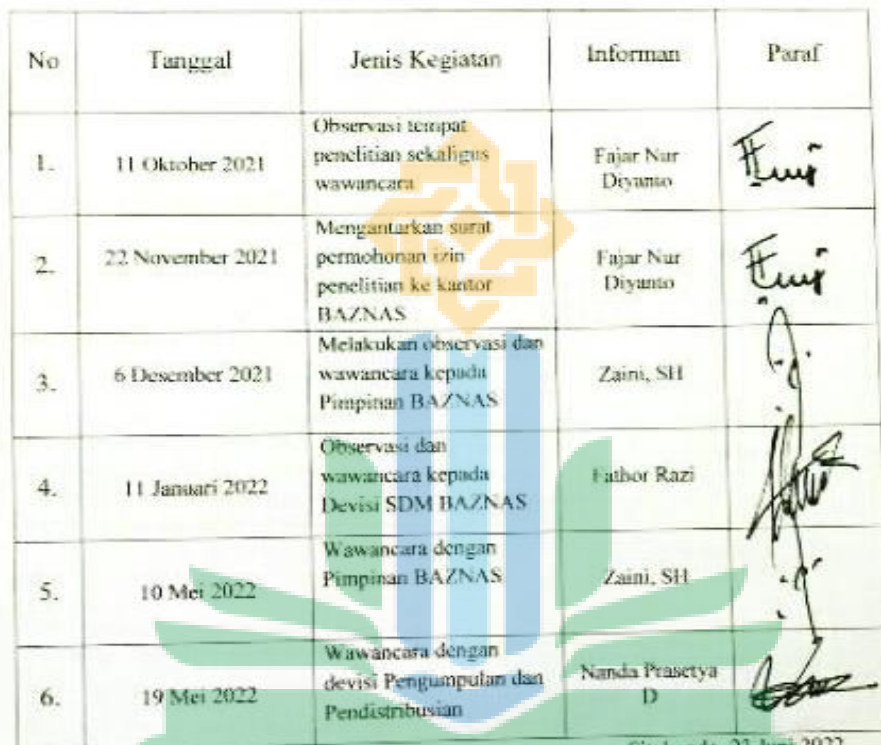 No Tanggal Jenis Kegiatan Informan Paraf
1. 11 Oktober 2021 Observasi tempat penelitian sekaligus wawancara Fajar Nur Diyanto
2. 22 November 2021 Mengantarkan surat permohonan izin penelitian ke kantor BAZNAS Fajar Nur Diyanto
3. 6 Desember 2021 Melakukan observasi dan wawancara kepada Pimpinan BAZNAS Zaini, SH
4. 11 Januari 2022 Observasi dan wawancara kepada Devisi SDM BAZNAS Fathor Razi
5. 10 Mei 2022 Wawancara dengan Pimpinan BAZNAS Zaini, SH
6. 19 Mei 2022 Wawancara dengan devisi Pengumpulan dan Pendistribusian Nanda Prasetya D
Juni 2022